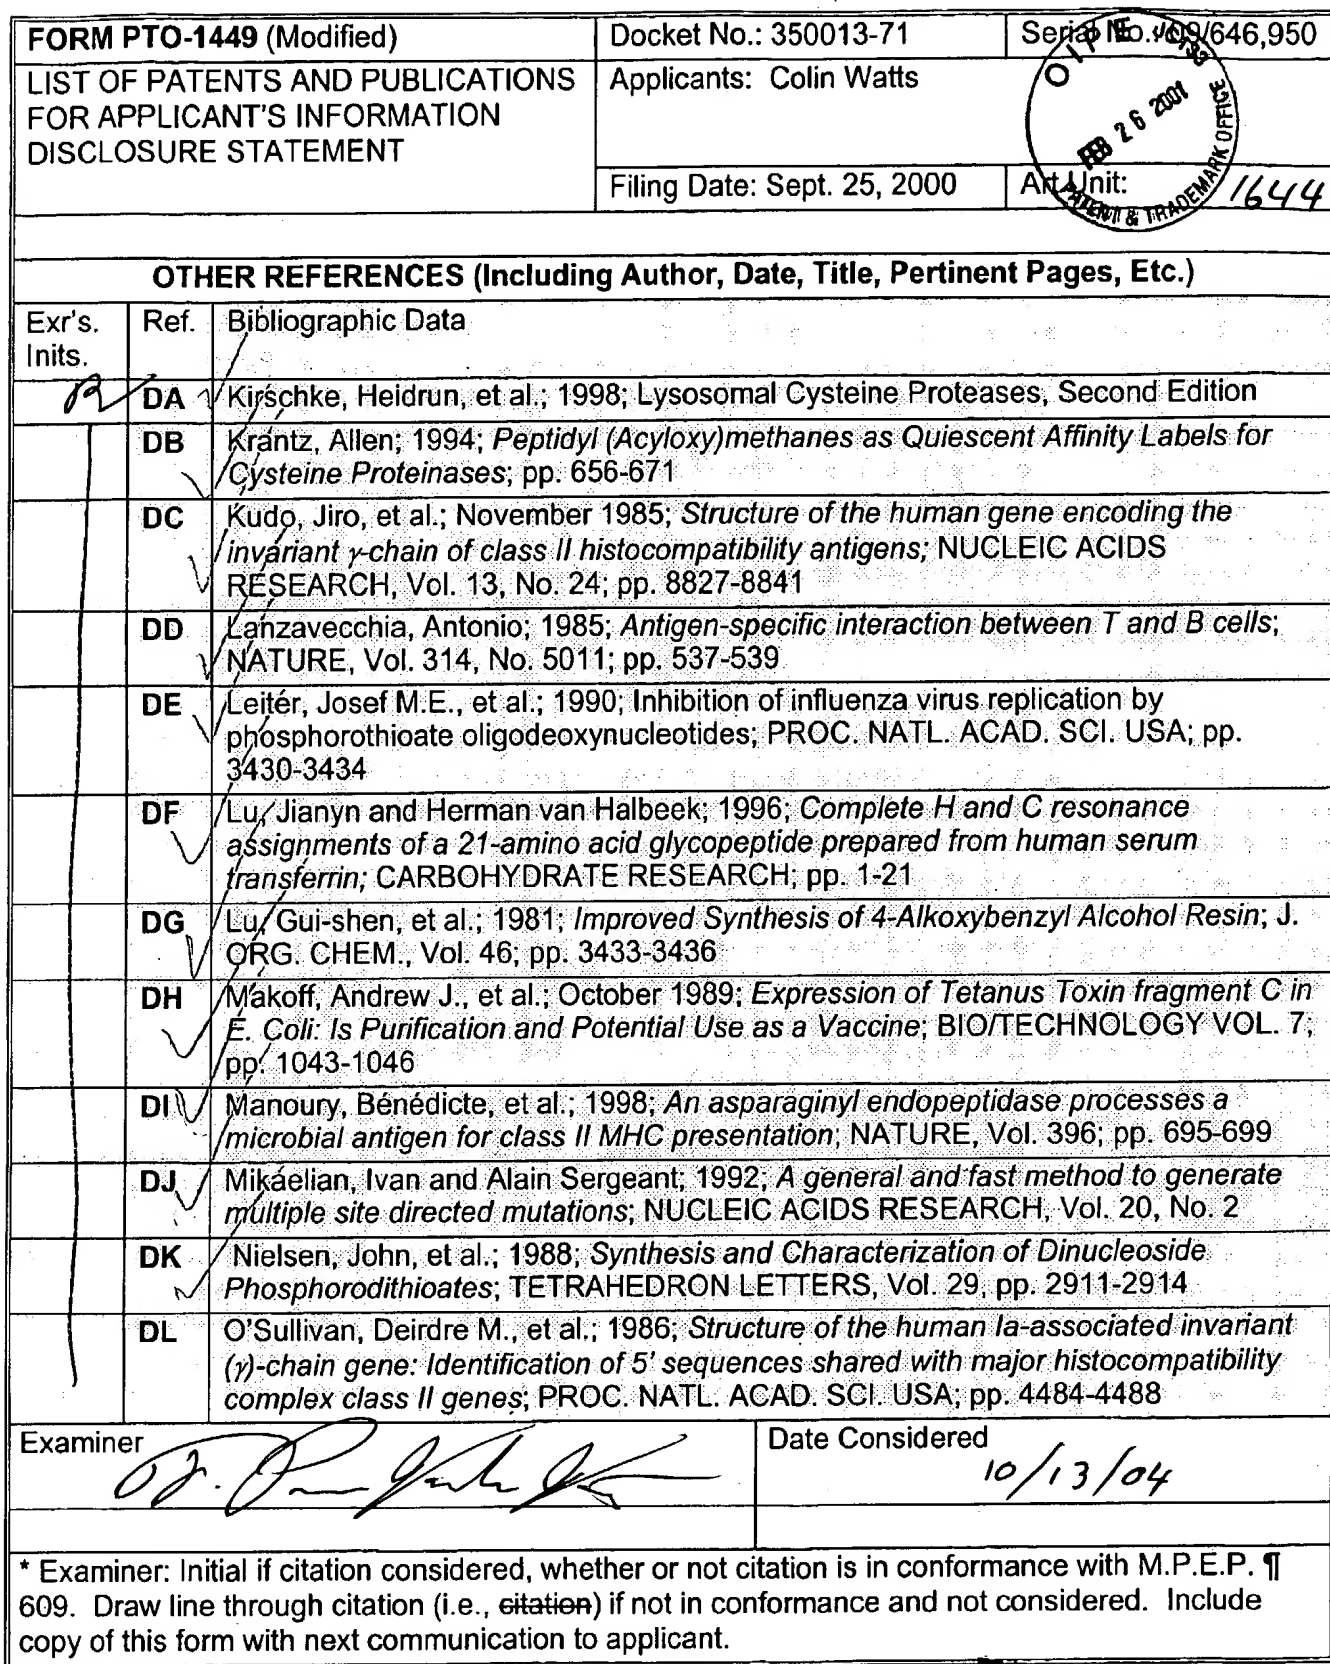 FORM PTO-1449 (Modified)
Docket No.: 350013-71
Serial No.: 09/646,950
LIST OF PATENTS AND PUBLICATIONS
FOR APPLICANT'S INFORMATION
DISCLOSURE STATEMENT
Applicants: Colin Watts
O I P E
FEB 26 2001
PATENT & TRADEMARK OFFICE
Filing Date: Sept. 25, 2000
Art Unit: 1644
OTHER REFERENCES (Including Author, Date, Title, Pertinent Pages, Etc.)
Exr's.
Inits.
Ref.
Bibliographic Data
DA Kirschke, Heidrun, et al.; 1998; Lysosomal Cysteine Proteases, Second Edition
DB Krantz, Allen; 1994; Peptidyl (Acyloxy)methanes as Quiescent Affinity Labels for
Cysteine Proteinases; pp. 656-671
DC Kudo, Jiro, et al.; November 1985; Structure of the human gene encoding the
invariant γ-chain of class II histocompatibility antigens; NUCLEIC ACIDS
RESEARCH, Vol. 13, No. 24; pp. 8827-8841
DD Lanzavecchia, Antonio; 1985; Antigen-specific interaction between T and B cells;
NATURE, Vol. 314, No. 5011; pp. 537-539
DE Leiter, Josef M.E., et al.; 1990; Inhibition of influenza virus replication by
phosphorothioate oligodeoxynucleotides; PROC. NATL. ACAD. SCI. USA; pp.
3430-3434
DF Lu, Jianyn and Herman van Halbeek; 1996; Complete H and C resonance
assignments of a 21-amino acid glycopeptide prepared from human serum
transferrin; CARBOHYDRATE RESEARCH; pp. 1-21
DG Lu, Gui-shen, et al.; 1981; Improved Synthesis of 4-Alkoxybenzyl Alcohol Resin; J.
ORG. CHEM., Vol. 46; pp. 3433-3436
DH Makoff, Andrew J., et al.; October 1989; Expression of Tetanus Toxin fragment C in
E. Coli: Is Purification and Potential Use as a Vaccine; BIO/TECHNOLOGY VOL. 7;
pp. 1043-1046
DI Manoury, Bénédicte, et al.; 1998; An asparaginyl endopeptidase processes a
microbial antigen for class II MHC presentation; NATURE, Vol. 396; pp. 695-699
DJ Mikaelian, Ivan and Alain Sergeant; 1992; A general and fast method to generate
multiple site directed mutations; NUCLEIC ACIDS RESEARCH, Vol. 20, No. 2
DK Nielsen, John, et al.; 1988; Synthesis and Characterization of Dinucleoside
Phosphorodithioates; TETRAHEDRON LETTERS, Vol. 29, pp. 2911-2914
DL O'Sullivan, Deirdre M., et al.; 1986; Structure of the human Ia-associated invariant
(γ)-chain gene: Identification of 5' sequences shared with major histocompatibility
complex class II genes; PROC. NATL. ACAD. SCI. USA; pp. 4484-4488
Examiner
Date Considered
10/13/04
* Examiner: Initial if citation considered, whether or not citation is in conformance with M.P.E.P. ¶
609. Draw line through citation (i.e., citation) if not in conformance and not considered. Include
copy of this form with next communication to applicant.